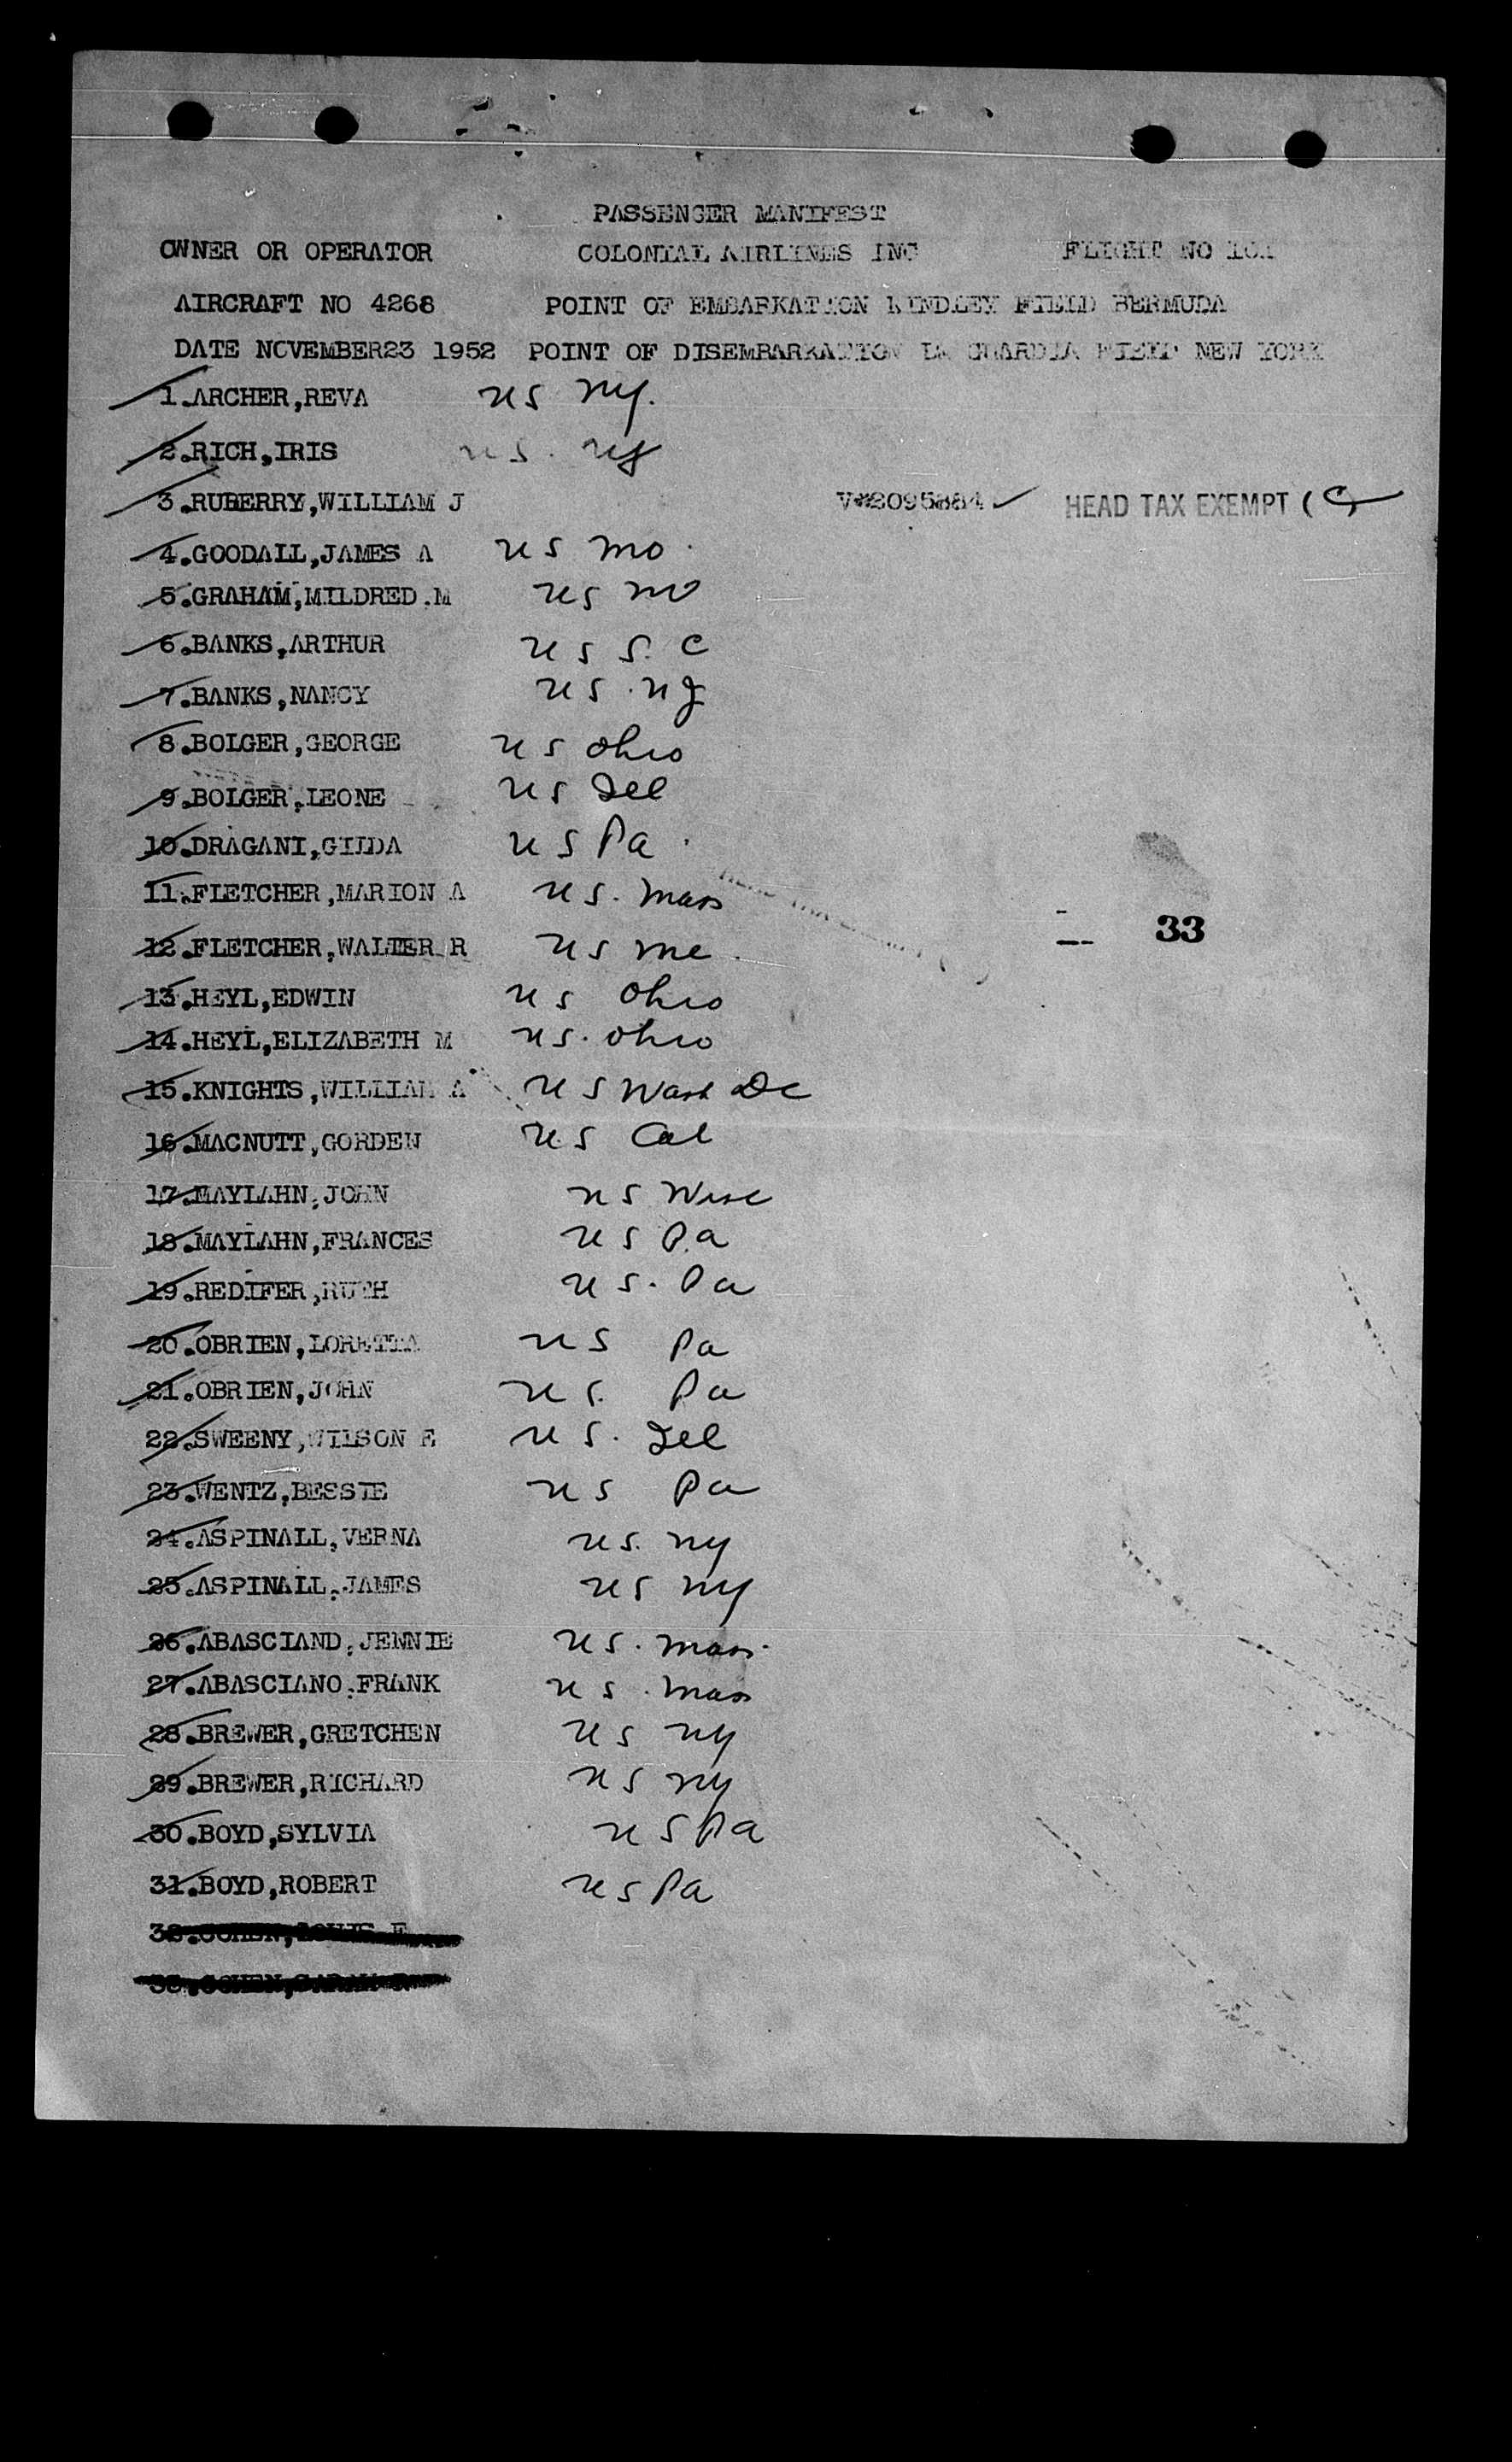 PASSENGER MANIFEST
OWNER OR OPERATOR COLONIAL AIRLINES INC FLIGHT NO
AIRCRAFT NO 4268 POINT OF EMBARKATION KINDLEY FIELD BERMUDA
DATE NOVEMBER23 1952 POINT OF DISEMBARKATION LA GUARDIA FIELD NEW YORK
1.ARCHER,REVA US NY.
2.RICH,IRIS US. NY
3.RUBERRY,WILLIAM J V#2095884 HEAD TAX EXEMPT (C)
4.GOODALL,JAMES A US MO.
5.GRAHAM,MILDRED.M US MO
6.BANKS,ARTHUR US S. C
7.BANKS,NANCY US. NJ
8.BOLGER,GEORGE US Ohio
9.BOLGER,LEONE US Del
10.DRAGANI,GILDA US Pa.
11.FLETCHER,MARION A US. Mass
12.FLETCHER,WALTER R US Me.
13.HEYL,EDWIN US Ohio
14.HEYL,ELIZABETH M US. Ohio
33
15.KNIGHTS,WILLIAM A US Wash DC
16.MACNUTT,GORDEN US Cal
17.MAYLAHN,JOHN US Wisc
18.MAYLAHN,FRANCES US Pa
19.REDIFER,RUTH US. Pa
20.OBRIEN,LORETTA US Pa
21.OBRIEN,JOHN US. Pa
22.SWEENY,WILSON E US. Del
23.WENTZ,BESSIE US Pa
24.ASPINALL,VERNA US. NY
25.ASPINALL,JAMES US NY
26.ABASCIAND,JENNIE US. Mass.
27.ABASCIANO,FRANK US. Mass
28.BREWER,GRETCHEN US NY
29.BREWER,RICHARD US NY
30.BOYD,SYLVIA US Pa
31.BOYD,ROBERT US Pa